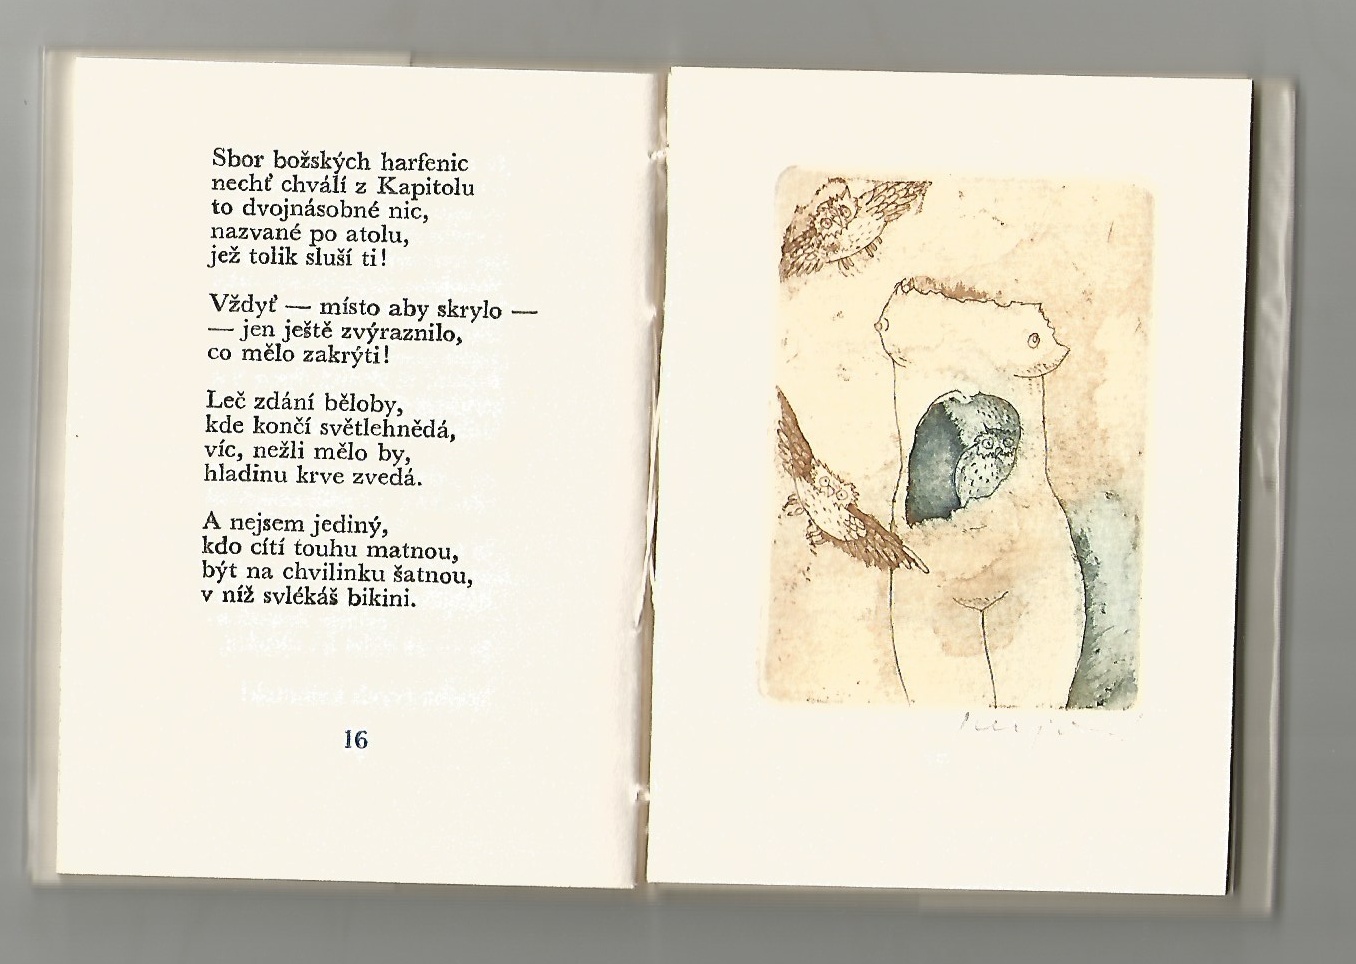 Sbor božských harfenic
nechť chválí z Kapitolu
to dvojnásobné nic,
nazvané po atolu,
jež tolik sluší ti!
Vždyť — místo aby skrylo —
— jen ještě zvýraznilo,
co mělo zakrýti!
Leč zdání běloby,
kde končí světlehnědá,
víc, nežli mělo by,
hladinu krve zvedá.
A nejsem jediný,
kdo cítí touhu matnou,
být na chvilinku šatnou,
v níž svlékáš bikini.
16